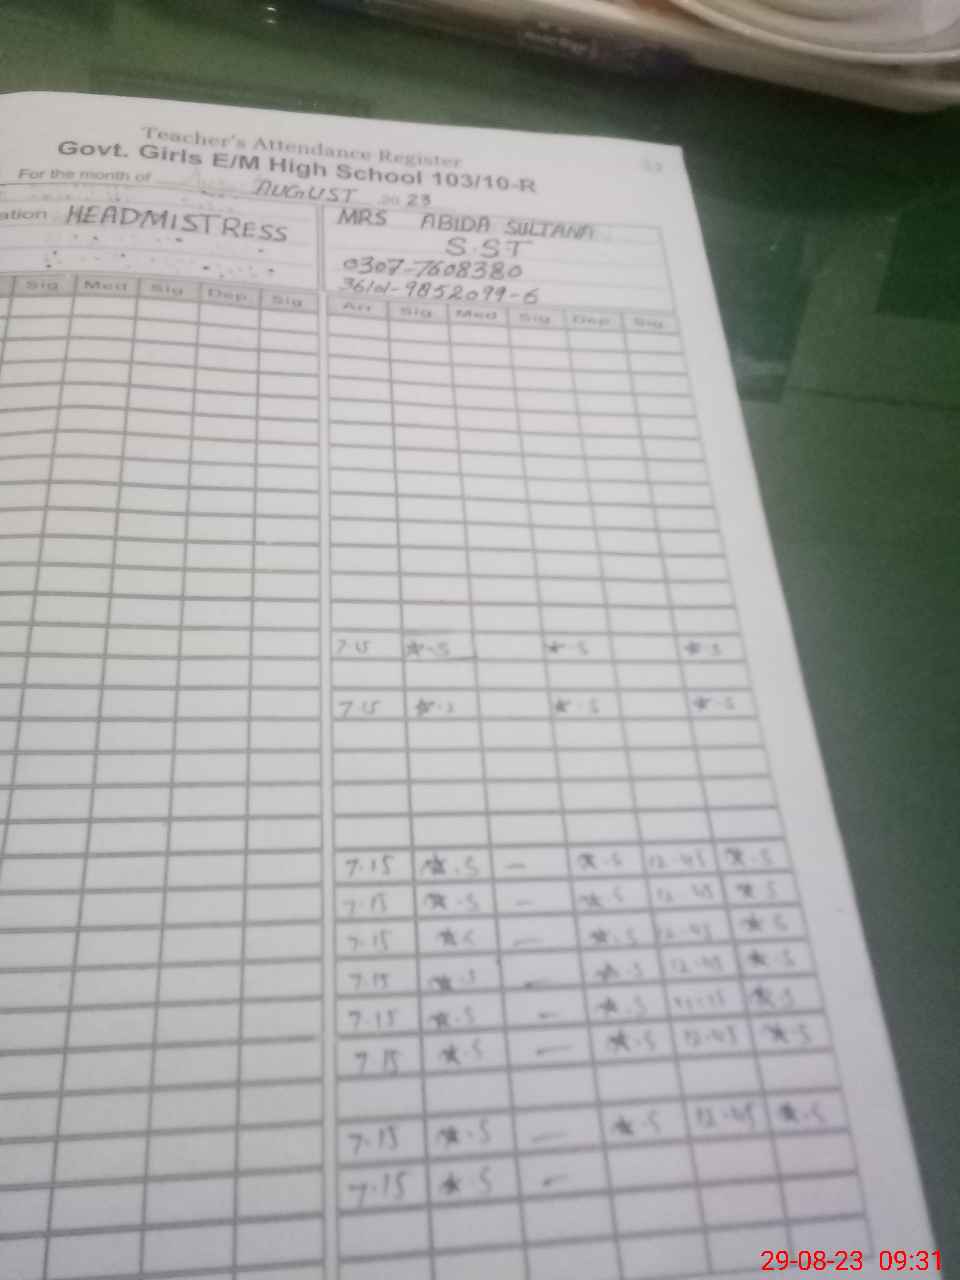 Teacher's Attendance Register
Govt. Girls E/M High School 103/10-R
For the month of AUGUST 20 23
ation HEADMISTRESS
MRS ABIDA SULTANA
S.ST
0307-7608380
Sig Med Sig Dep Sig
Arr Sig Med Sig Dep Sig
7.15 .S .S .S
7.15 .S .S
7.15 .S - .S 12.45 .S
7.15 .S - S 12.45 S
7.15 - .S 12.45 S
7.15 .S - .S 12.45 .S
7.15 .S - .S .S
7.15 .S - .S 12.45 .S
7.15 .S - .S 12.45 .S
7.15 .S -
29-08-23 09:31